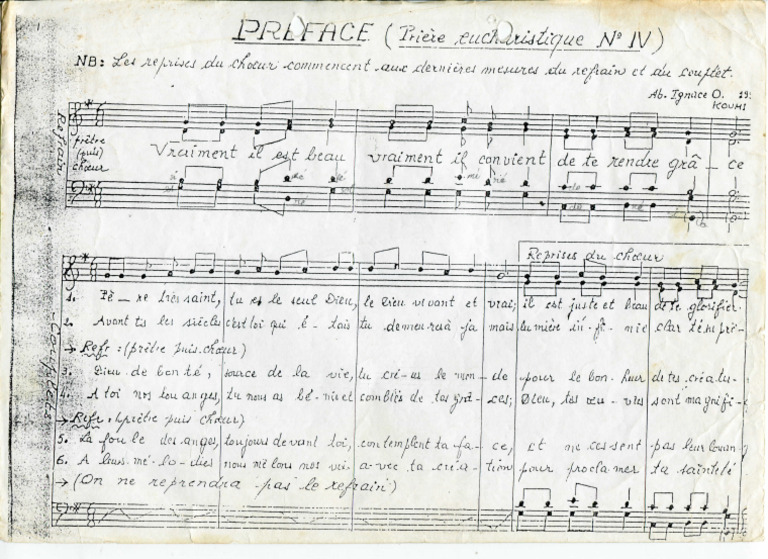 PREFACE (Prière eucharistique N° IV)
NB: Les reprises du chœur commencent aux dernières mesures du refrain et du couplet.
Ab. Ignace O.
KOUMI
Refrain
prêtre
(puis)
chœur
Vraiment il est beau vraiment il convient de te rendre grâ - ce
Reprises du chœur
Couplets
1. Pè - re très saint, tu es le seul Dieu, le Dieu vivant et vrai; il est juste et beau de te glorifier
2. Avant ts les siècles c'est toi qui é - tais tu demeures à ja - mais lumière in - fi - nie clar té im pré -
→ Refr: (prêtre puis chœur)
3. Dieu de bon té, source de la vie, tu cré - as le mon - de pour le bon - heur de tes créa tu -
4. A toi nos lou anges, tu nous as bé - nis et comblés de tes grâ - ces; Dieu, tes œu - vres sont ma gnifi -
→ Refr: (prêtre puis chœur)
5. La fou le des anges, toujours devant toi, contemplent ta fa - ce, et ne ces sent pas leur louan
6. A leurs mé - lo - dies nous mê lons nos voi a - vec ta cré a - tion pour procla mer ta sainteté
→ (On ne reprendra pas le refrain)